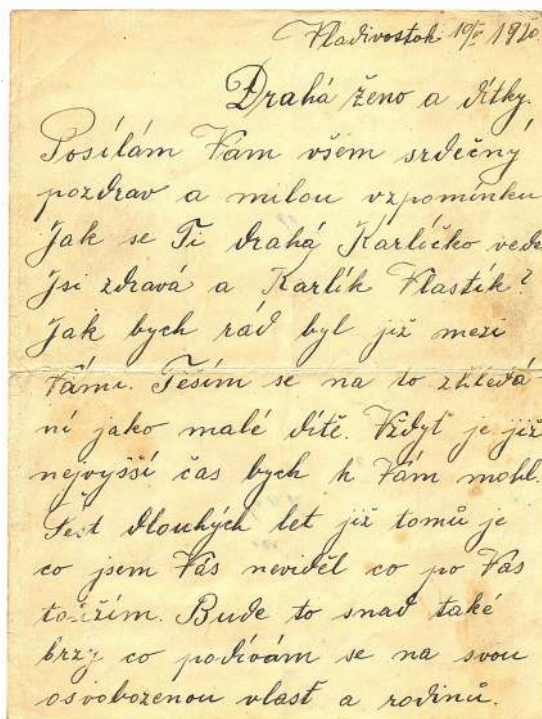 Vladivostok 10/V 1920.
Drahá ženo a dítky.
Posílám Vám všem srdečný
pozdrav a milou vzpomínku
Jak se Ti drahá Karličko vede
Jsi zdravá a Karlík Vlastík?
Jak bych rád byl již mezi
Vámi. Těším se na to shledá-
ní jako malé dítě. Vždyť je již
nejvyšší čas bych k Vám mohl.
Šest dlouhých let již tomů je
co jsem Vás neviděl co po Vás
toužím. Bude to snad také
brzy co podívám se na svou
osvobozenou vlasť a rodinů.